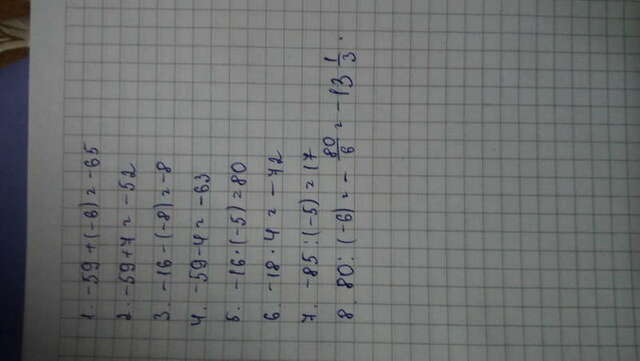 1. -59+(-6)=-65
2. -59+7=-52
3. -16-(-8)=-8
4. -59-4=-63
5. -16·(-5)=80
6. -18·4=-72
7. -85:(-5)=17
8. 80:(-6)=-80/6=-13 1/3.